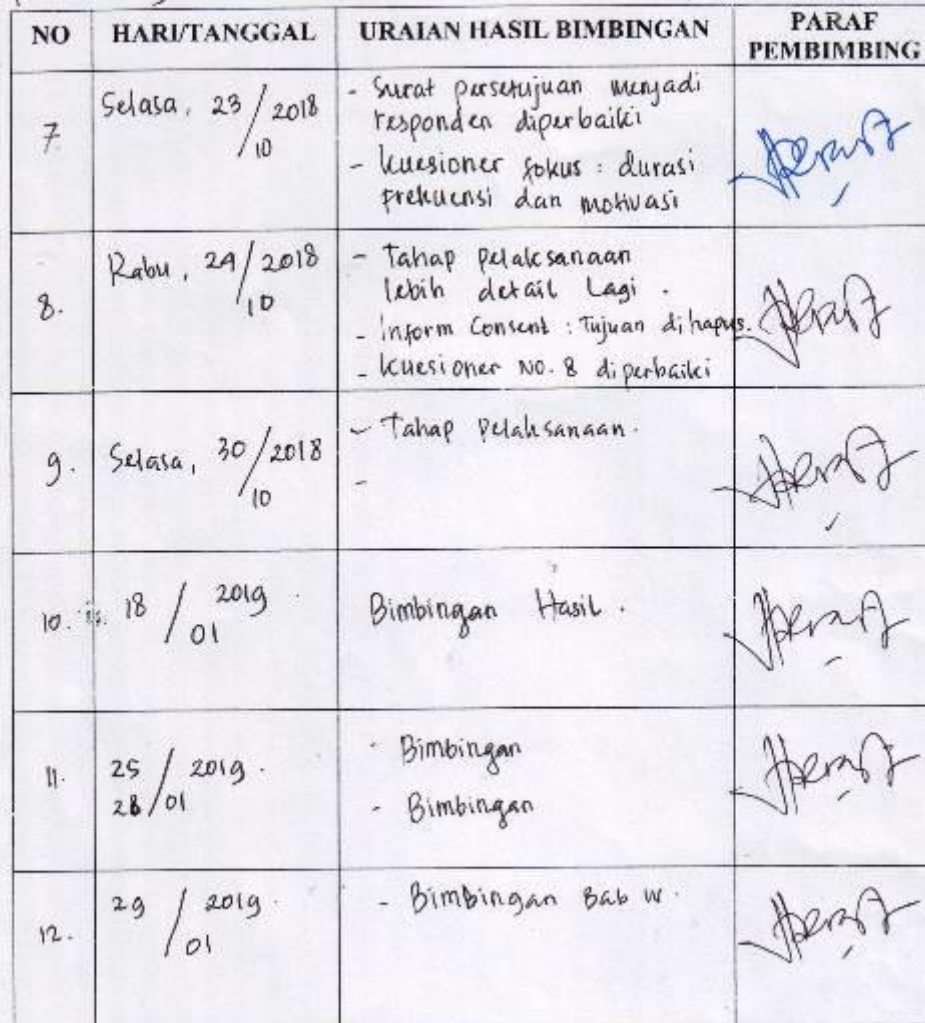 NO HARI/TANGGAL URAIAN HASIL BIMBINGAN PARAF PEMBIMBING
7. Selasa, 23/10 2018
- Surat persetujuan menjadi
responden diperbaiki
- kuesioner fokus : durasi
frekuensi dan motivasi
8. Rabu, 24/10 2018
- Tahap pelaksanaan
lebih detail Lagi .
- Inform Consent : Tujuan dihapus.
- kuesioner NO. 8 diperbaiki
9. Selasa, 30/10 2018
- Tahap Pelaksanaan.
-
10. 18/01 2019.
Bimbingan Hasil .
11. 25/01 2019.
28
- Bimbingan
- Bimbingan
12. 29/01 2019.
- Bimbingan Bab IV.